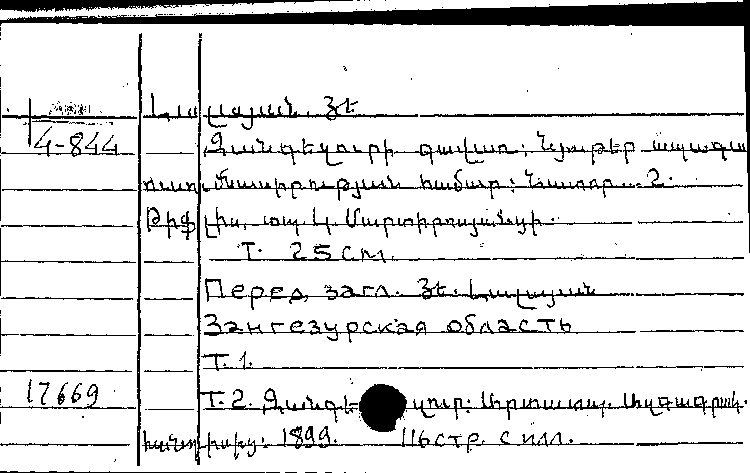 Լալայան, Յե
4-844
Զանգեզուրի գավառ: Նյութեր ապագա
ուսումնասիրության համար: Նատոր... 2.
Թիֆլիս, տպ. Մարտիրոսյանցի.
Т. 25 см.
Перед загл. Յե. Լալայան
Зангезурская область
Т. 1.
17669
Т. 2. Զանգեզուր: Արտատպ. Ազգագրակ.
հանդիսից: 1899. 116 стр. с илл.